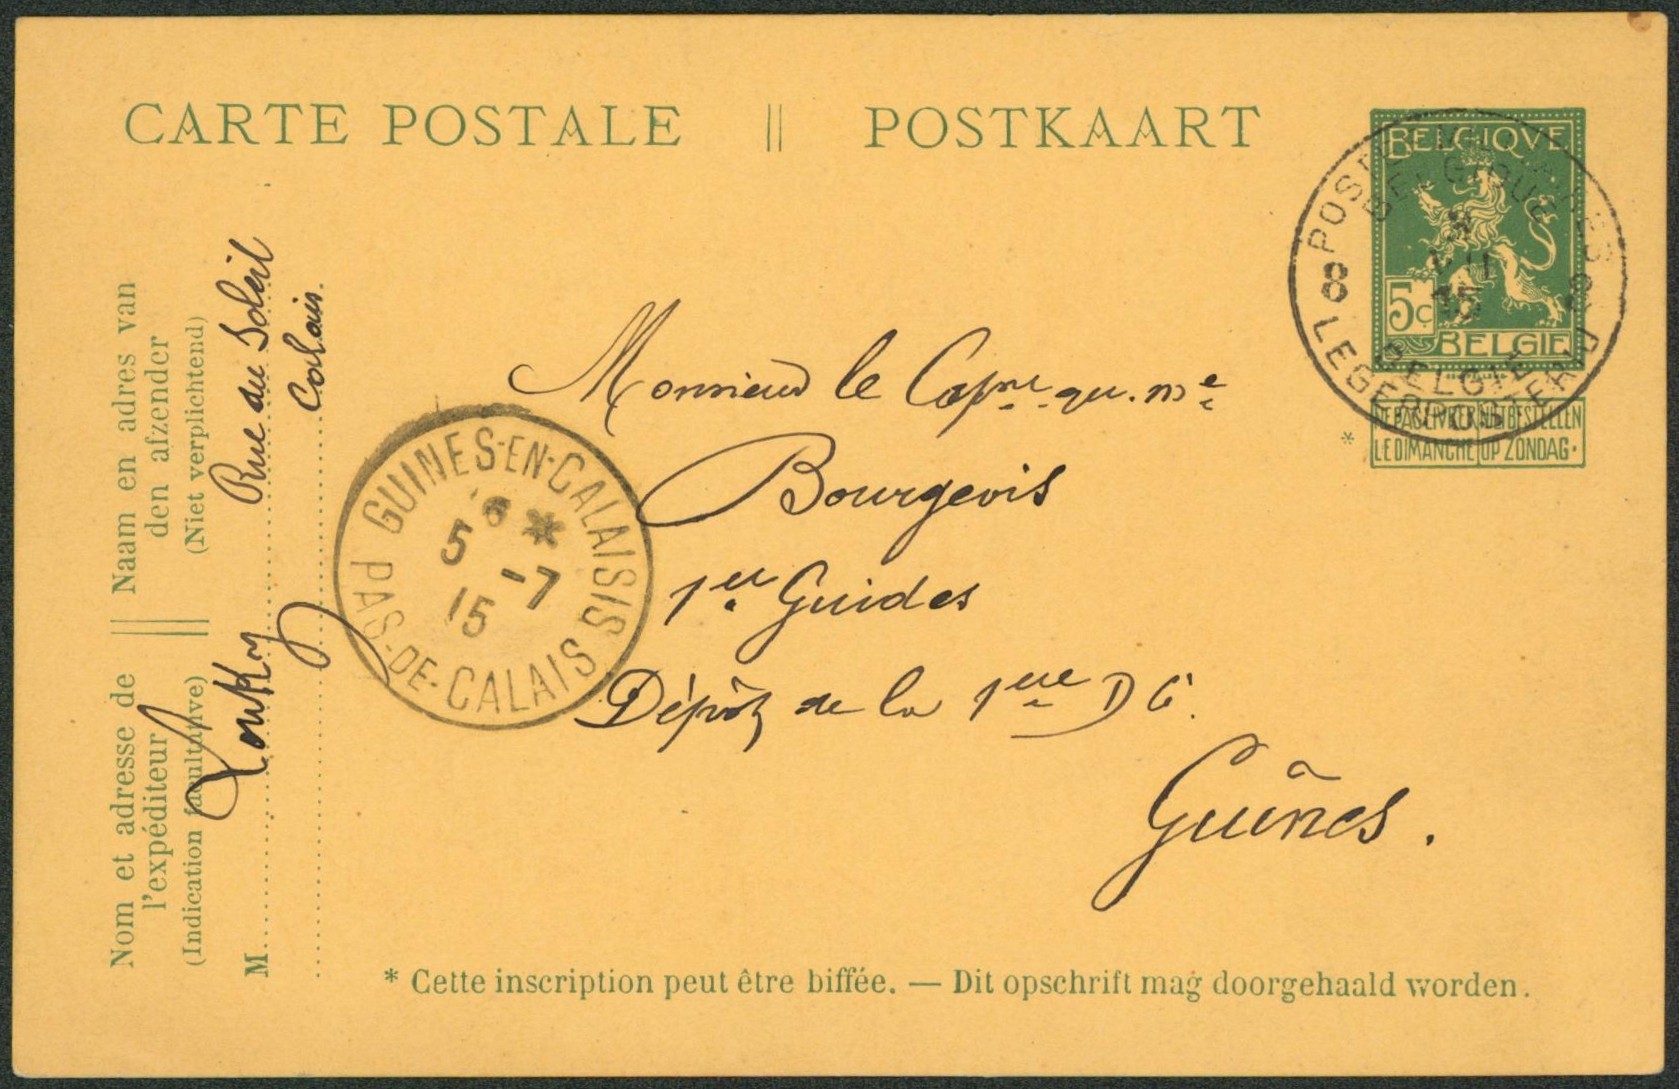 CARTE POSTALE || POSTKAART
BELGIQVE
5c
BELGIE
NE PAS LIVRER NIET BESTELLEN
LE DIMANCHE OP ZONDAG.
*
BELGIQUE
VII
15
BELGIE
LEGERPOSTERIJ
8 8
Monsieur le Cap ne qu. me
Bourgeois
1er Guides
Dépôt de la 1ère D C.
Guînes.
GUINES-EN-CALAISIS
6 *
5 -7
15
PAS-DE-CALAIS
Nom et adresse de || Naam en adres van
l'expéditeur den afzender
(Indication facultative) || (Niet verplichtend)
M Rue du Soleil
Calais.
* Cette inscription peut être biffée. — Dit opschrift mag doorgehaald worden.